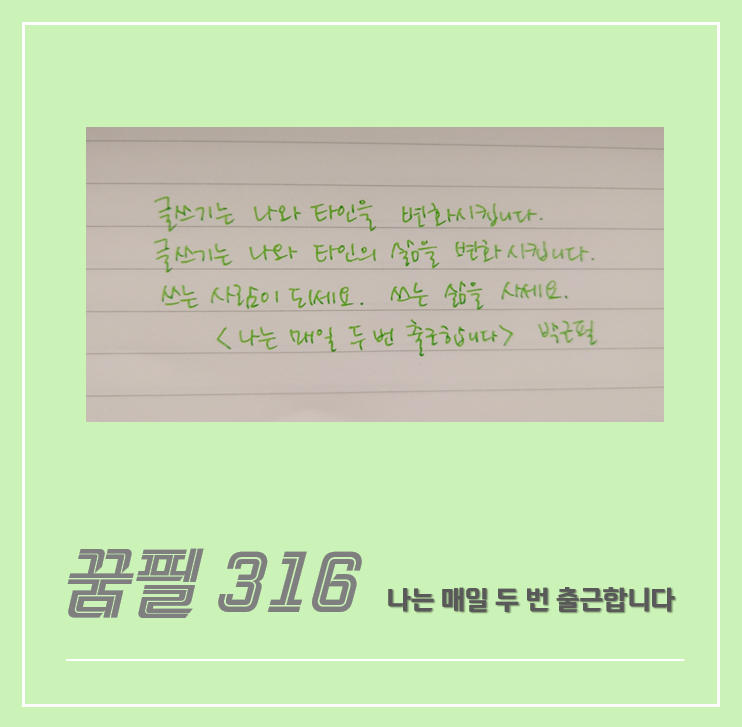 글쓰기는 나와 타인을 변화시킵니다.
글쓰기는 나와 타인의 삶을 변화시킵니다.
쓰는 사람이 되세요. 쓰는 삶을 사세요.
<나는 매일 두 번 출근합니다> 박근필
꿈필 316 나는 매일 두 번 출근합니다